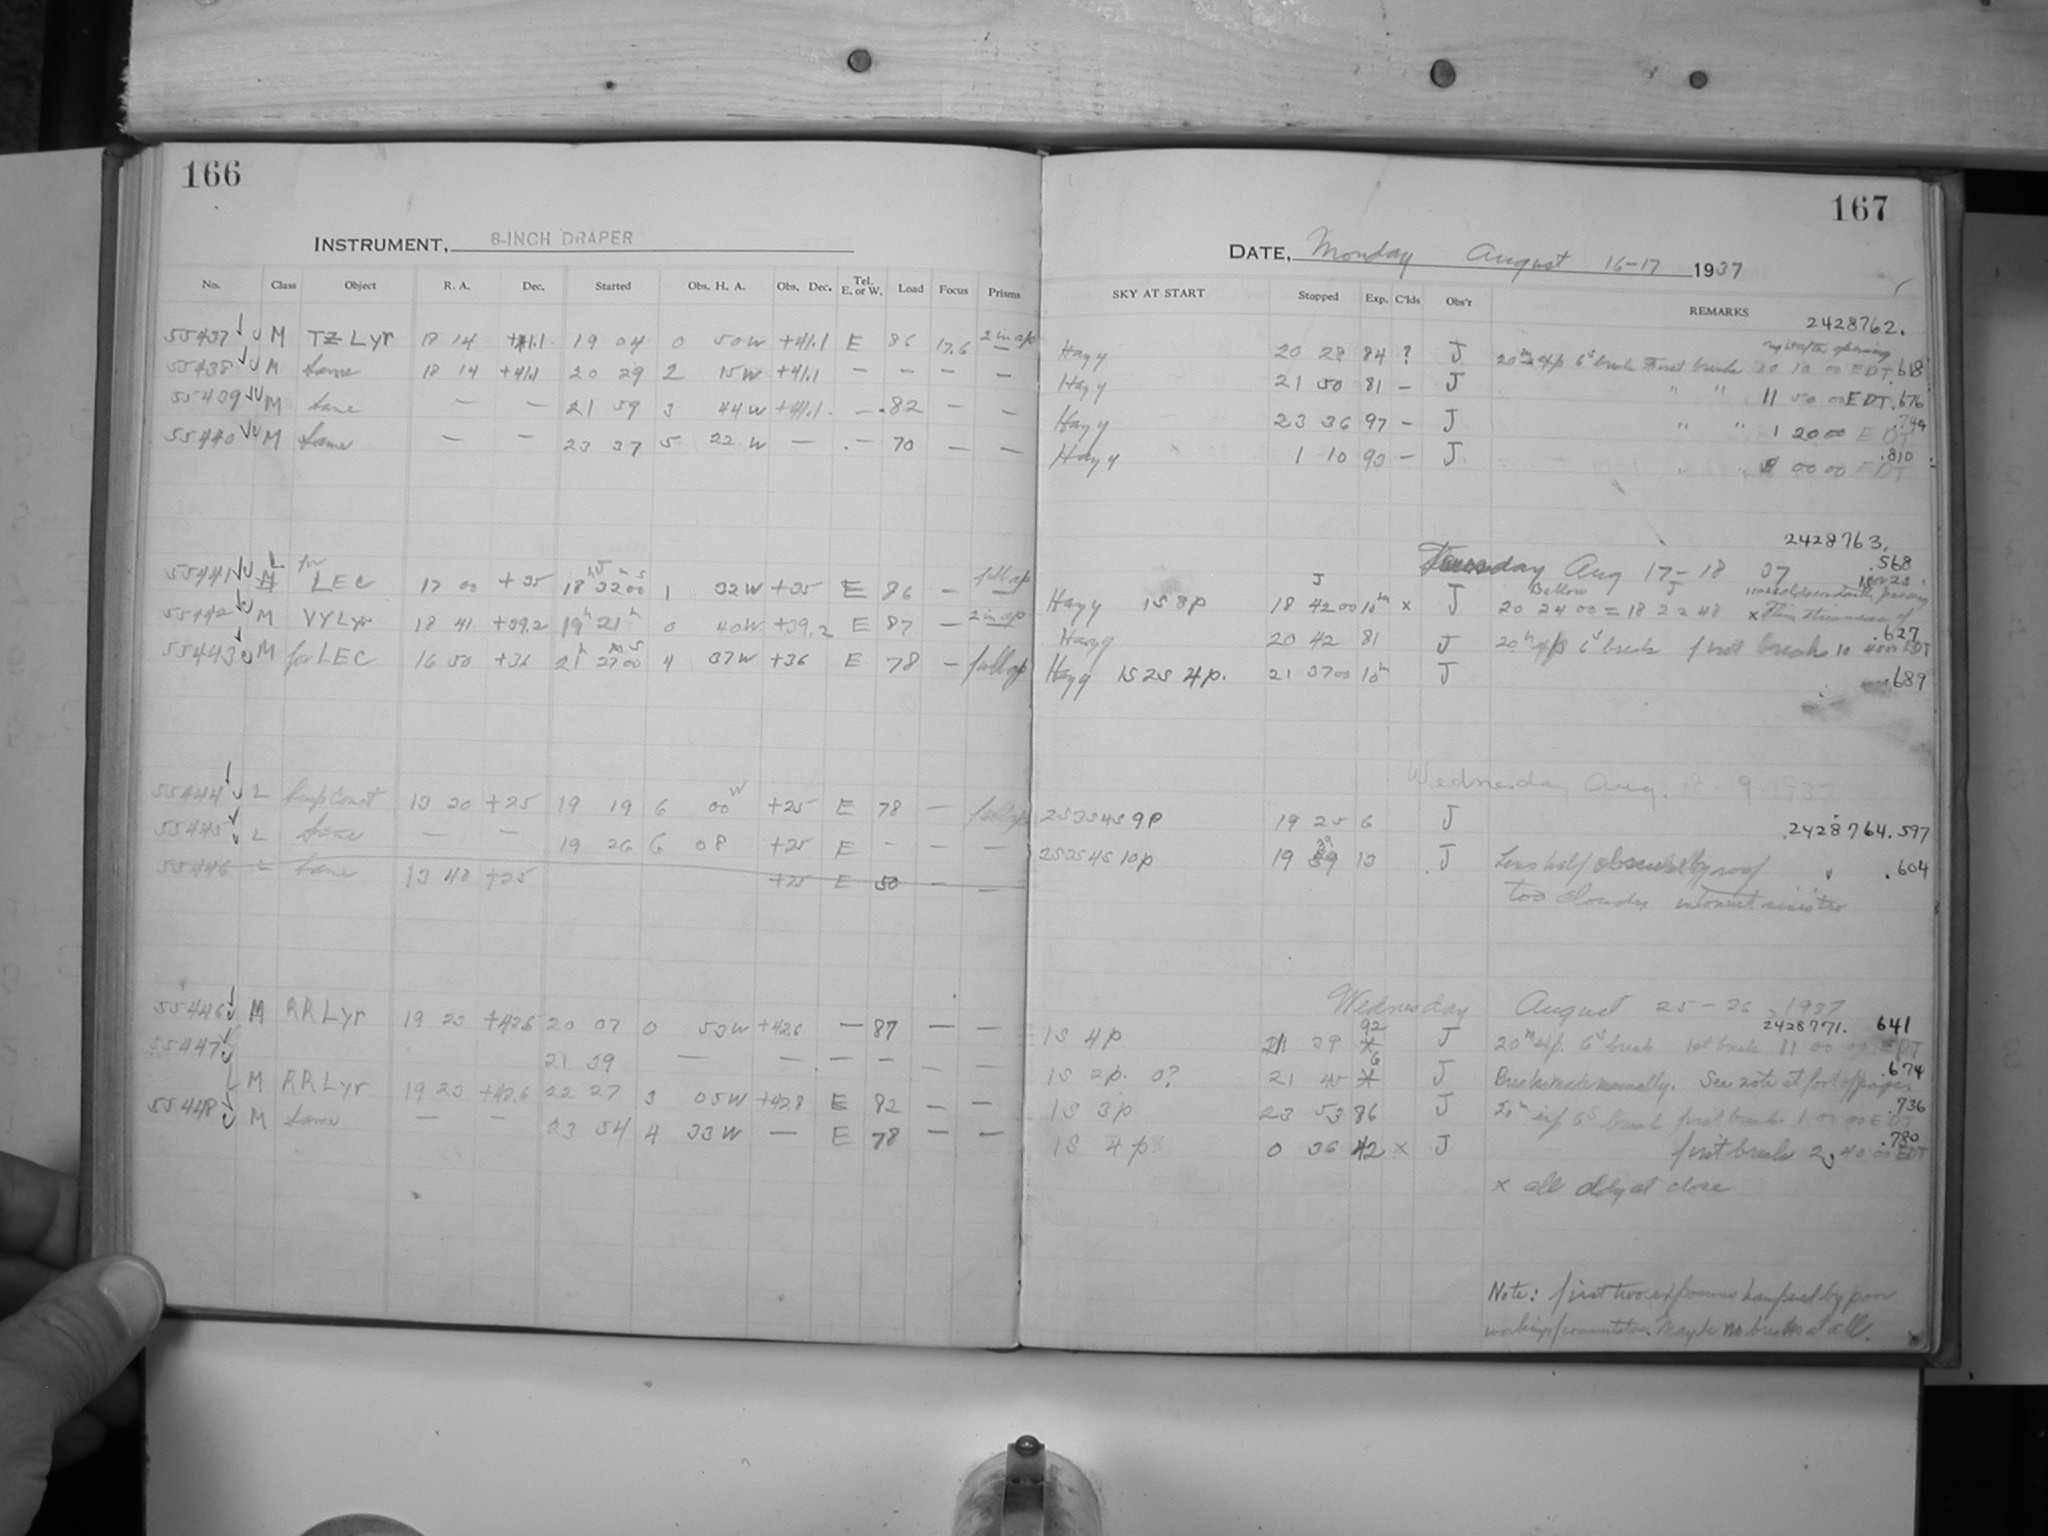 166
INSTRUMENT, 8-INCH DRAPER
No. Class Object R. A. Dec. Started Obs. H. A. Obs. Dec. Tel. E. or W. Load Focus Prisms
55437 M TZ Lyr 18 14 +41.1 19 04 0 50W +41.1 E 86 17.6 2 in ap
55438 M Same 18 14 +41.1 20 29 2 15W +41.1 — — — —
55439 M Same — — 21 59 3 44W +41.1 — 82 — —
55440 M Same — — 23 37 5 22 W — — 70 — —
55441 L for LEC 17 00 +35 18 32 00 1 32W +35 E 86 — full ap
55442 M VY Lyr 18 41 +39.2 19h 21m 0 40W +39.2 E 87 — 2 in ap
55443 M for LEC 16 50 +36 21h 27m 00s 4 37W +36 E 78 — full ap
55444 L 13 20 +25 19 19 6 00W +25 E 78 — full ap
55445 L Same — — 19 26 6 08 +25 E — — —
55446 L Same 13 40 +25 +25 E 50 — —
55446 M RR Lyr 19 23 +42.6 20 07 0 53W +42.6 — 87 — —
55447 21 39 — — — — — —
M RR Lyr 19 23 +42.6 22 27 3 05W +42.8 E 82 — —
55448 M Same — — 23 54 4 33W — E 78 — —
167
DATE, Monday August 16-17 1937
SKY AT START Stopped Exp. C'lds Obs'r REMARKS
2428762.
Hazy 20 28 84 ? J 20m exp 6s break First break 10 00 EDT .618
Hazy 21 50 81 — J " " 11 50 00 EDT .676
Hazy 23 36 97 — J " " 1 20 00 EDT .749
Hazy 1 10 93 — J " " 00 00 EDT .810
2428763.
Tuesday Aug 17-18 37 .568
Hazy 1S 8p 18 42 00 10m x J 20 24 00 = 18 22 48
Hazy 20 42 81 J 20m exp 6s break first break 10 EDT .627
Hazy 1S 2S 4p. 21 37 00 10m J .689
Wednesday Aug. 1937
2S 3S 4S 9p 19 25 6 J 2428764.597
2S 3S 4S 10p 19 39 13 J Lens half obscured by roof .604
too cloudy
Wednesday August 25-26, 1937
2428771. 641
1S 4p 21 39 92 J 20m exp. 6s break 1st break 11 00 00 EDT
1S 2p. 0? 21 45 6 J Breaks made manually. See note at foot of page .674
1S 3p 23 53 86 J 20m exp 6s break first break 1 00 00 EDT .736
1S 4p 0 36 42 x J first break 2 40 00 EDT .780
x all cldy at close
Note: first two exposures hampered by poor
working commutator. Maybe no breaks at all.